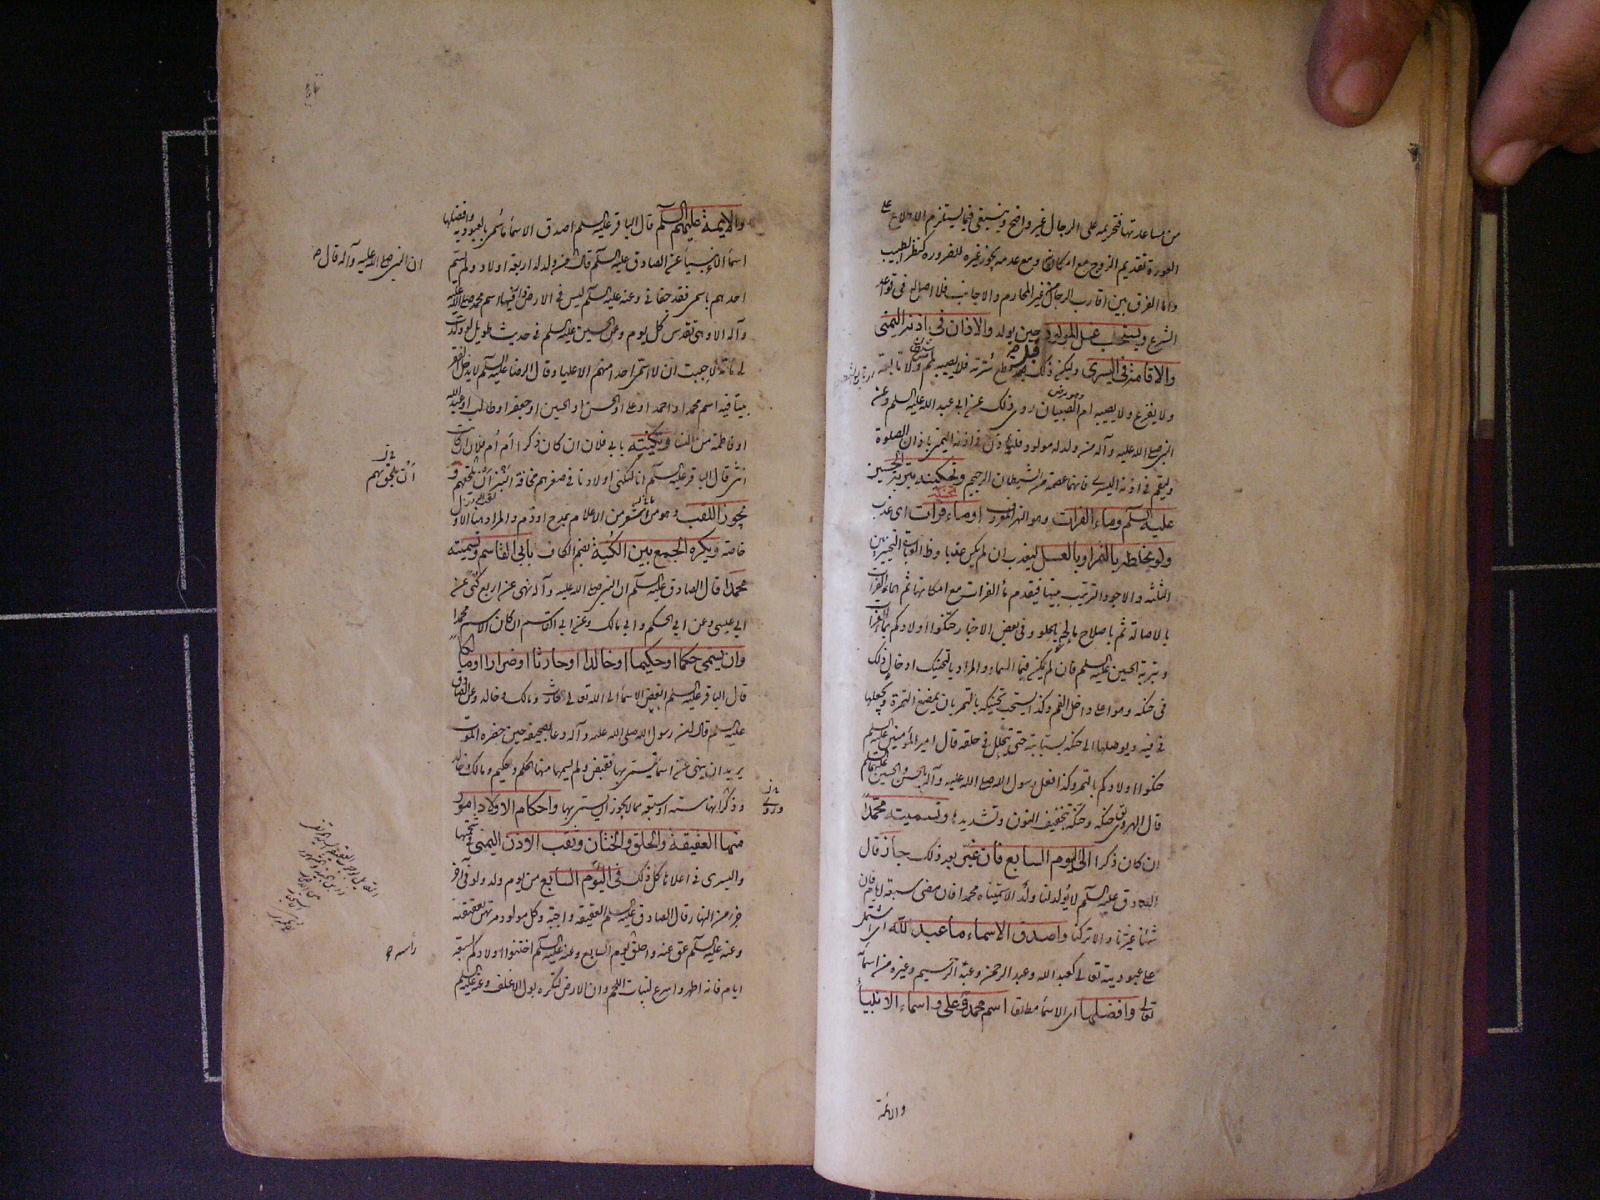 من مساعدتها فتحريمه على الرجال غير واضح وينبغى فيما يستلزم الاطلاع على
العورة تقديم الزوج مع امكانه ومع عدمه يجوز غيره للضرورة كنظر الطبيب
واما الفرق بين اقارب الرجال من غير المحارم والاجانب فلا اصل له فى قواعد
الشرع ويستحب غسل المولود حين يولد والاذان فى اذنه اليمنى
والاقامة فى اليسرى وليكن ذلك قبل قطع سرته فلا يصيبه لمم ولا تابعة
ولا يفزع ولا يصيبه ام الصبيان روى ذلك عن ابى عبد الله عليه السلم وعن
النبى صلى الله عليه وآله من ولد له مولود فليؤذن فى اذنه اليمنى باذان الصلوة
وليقم فى اذنه اليسرى فانها عصمة من الشيطان الرجيم وتحنيكه بتربة الحسين
عليه السلم وماء الفرات وهو النهر المعروف او ماء فرات اى عذب
ولو بخلطه بالتمر او بالعسل ليعذب ان لم يكن عذبا وظ العبارة التخيير بين
الثلثة والاجود الترتيب بينها فيقدم ماء الفرات مع امكانه ثم الماء الفرات
بالاصالة ثم باصلاح مالحه بالحلو وفى بعض الاخبار حنكوا اولادكم بماء الفرات
وبتربة الحسين عليه السلم فان لم يكن فبماء السماء والمراد بالتحنيك ادخال ذلك
فى حنكه وهو اعلى داخل الفم وكذا يستحب تحنيكه بالتمر بان يمضغ التمرة ويجعلها
فى فيه ويوصلها الى حنكه بسبابته حتى يتحلل فى حلقه قال امير المؤمنين عليه السلم
حنكوا اولادكم بالتمر وكذا فعل رسول الله صلى الله عليه وآله بالحسن والحسين عليهما السلم
قال الهروى يق حنكه وحنكه بتخفيف النون وتشديدها وتسميته محمدا
ان كان ذكرا الى اليوم السابع فان غير بعد ذلك جاز قال
الصادق عليه السلم لا يولد لنا ولد الا سميناه محمدا فان مضى سبعة ايام فان
شئنا غيرنا والا تركنا واصدق الاسماء ما عبد لله اى اشتمل
على عبودية تعالى كعبد الله وعبد الرحمن وعبد الرحيم وغيره من اسمائه
تعالى وافضلها اى الاسماء مطلقا اسم محمد وعلى واسماء الانبياء
والائمة
والائمة عليهم السلم قال الباقر عليه السلم اصدق الاسماء ما سمى بالعبودية وافضلها
اسماء الانبياء عن الصادق عليه السلم قال من ولد له اربعة اولاد ولم يسم
ان النبى صلى الله عليه وآله قال
احدهم باسمى فقد جفانى وعنه عليه السلم ليس فى الارض دار فيها اسم محمد صلى الله عليه
وآله الا وهى تقدس كل يوم وعن الحسين عليه السلم فى حديث طويل لو ولد
لى مائة لاحببت ان لا اسمى احدا منهم الا عليا وقال الرضا عليه السلم لا يدخل الفقر
بيتا فيه اسم محمد او احمد او على او الحسن او الحسين او جعفر او طالب او عبد الله
او فاطمة من النساء وتكنيته بابى فلان ان كان ذكرا او ام فلان ان كانت
انثى قال الباقر عليه السلم انا لنكنى اولادنا فى صغرهم مخافة النبز ان يلحق بهم و
ان يلحق بهم
يجوز اللقب وهو ما اشعر من الاعلام بمدح او ذم والمراد هنا الاول
خاصة ويكره الجمع بين الكنية بضم الكاف بابى القاسم وتسميته
محمدا قال الصادق عليه السلم ان النبى صلى الله عليه وآله نهى عن اربع كنى عن
ابى عيسى وعن ابى الحكم وابى مالك وعن ابى القاسم اذا كان الاسم محمدا
وان يسمى حكما او حكيما او خالدا او حارثا او ضرارا او مالكا
قال الباقر عليه السلم ابغض الاسماء الى الله تعالى حارث ومالك وخالد وعن الصادق
عليه السلم قال ان رسول الله صلى الله عليه وآله دعا بصحيفة حين حضره الموت
يريد ان ينهى عن اسماء يتسمى بها فقبض ولم يسمها منها الحكم وحكيم ومالك وخالد
وذكر انها ستة او سبعة مما لا يجوز ان يتسمى بها واحكام الاولاد امور
منها العقيقة والحلق والختان وثقب الاذن اليمنى فى شحمتها
واليسرى فى اعلاها كل ذلك فى اليوم السابع من يوم ولد ولو فى آخر
جزء من النهار قال الصادق عليه السلم العقيقة واجبة وكل مولود مرتهن بعقيقته
وعنه عليه السلم عق عنه واحلق يوم السابع وعنه عليه السلم اختنوا اولادكم لسبعة
رأسه
ايام فانه اطهر واسرع لنبات اللحم وان الارض لتكره بول الاغلف وعنه عليه السلم